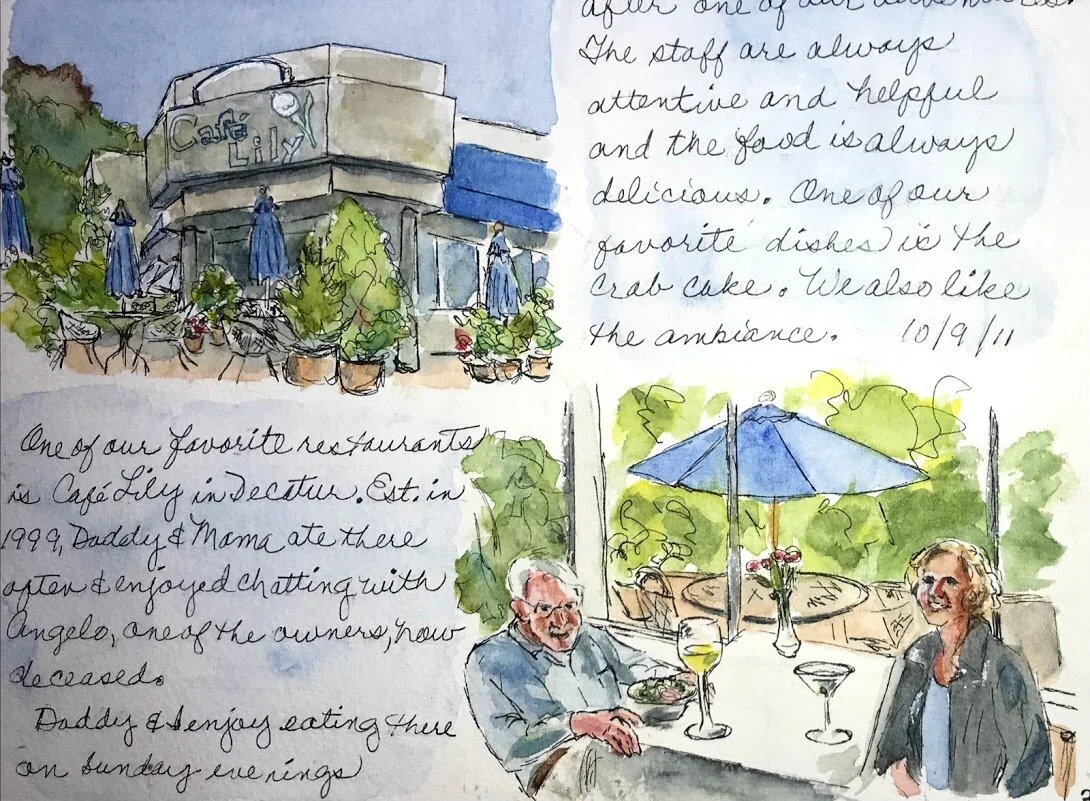 Café
Lily
One of our favorite restaurants
is Café Lily in Decatur. Est. in
1999, Daddy & Mama ate there
often & enjoyed chatting with
Angelo, one of the owners, now
deceased.
Daddy & I enjoy eating there
on Sunday evenings
after one of our
The staff are always
attentive and helpful
and the food is always
delicious. One of our
favorite dishes is the
crab cake. We also like
the ambiance. 10/9/11